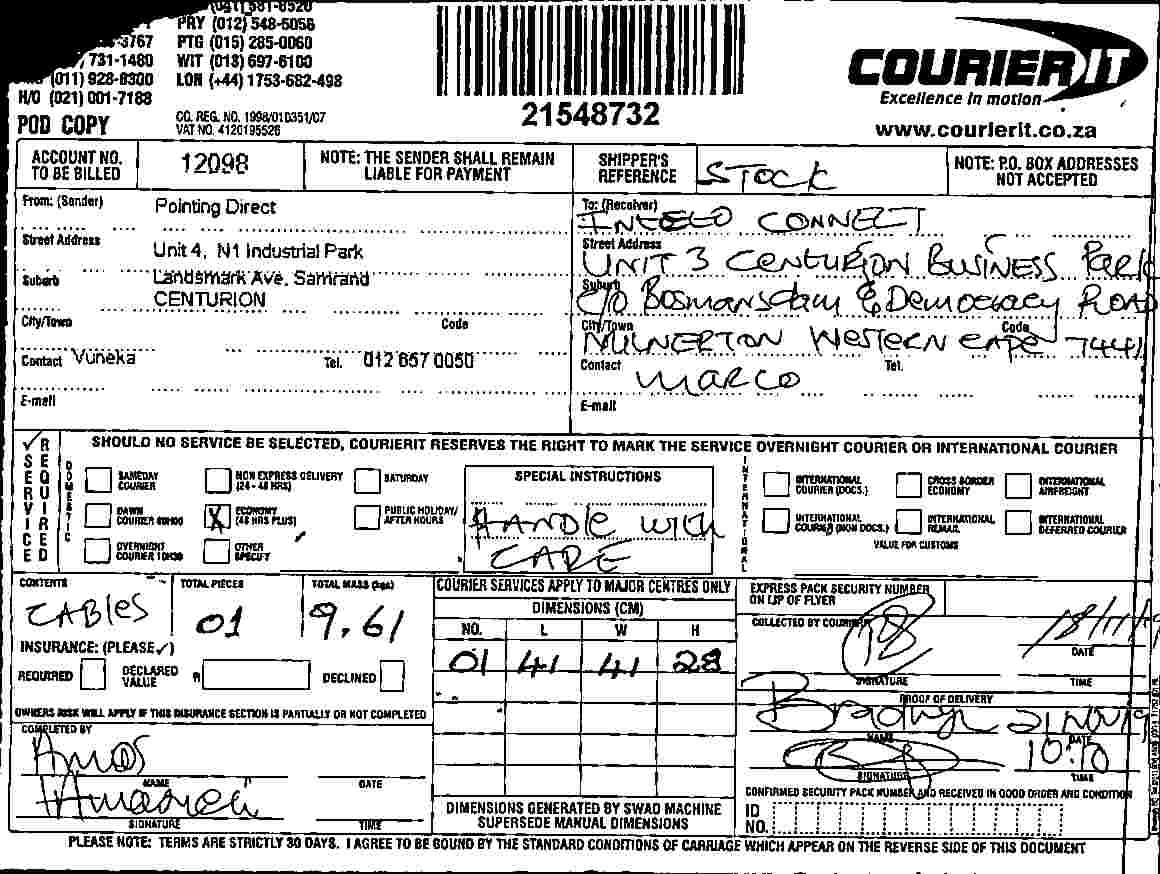 (041) 581-8520
PRY (012) 548-6058
3767 PTG (015) 285-0060
731-1480 WIT (013) 697-6100
(011) 928-8300 LON (+44) 1753-682-498
H/O (021) 001-7188
POD COPY
CO. REG. NO. 1998/010351/07
VAT NO. 4120195526
21548732
COURIER IT
Excellence in motion
www.courierit.co.za
ACCOUNT NO. TO BE BILLED 12098
NOTE: THE SENDER SHALL REMAIN LIABLE FOR PAYMENT
SHIPPER'S REFERENCE STOCK
NOTE: P.O. BOX ADDRESSES NOT ACCEPTED
From: (Sender) Pointing Direct
Street Address Unit 4, N1 Industrial Park
Suburb Landsmark Ave, Samrand
CENTURION
City/Town Code
Contact Vuneka Tel. 012 657 0050
E-mail
To: (Receiver) CONNECT
Street Address UNIT 3 CENTURION BUSINESS PARK
Suburb C/O BOSMANSDAM & DEMOCRACY ROAD
City/Town MILNERTON WESTERN CAPE Code 7441
Contact MARCO Tel.
E-mail
SERVICE REQUIRED
SHOULD NO SERVICE BE SELECTED, COURIERIT RESERVES THE RIGHT TO MARK THE SERVICE OVERNIGHT COURIER OR INTERNATIONAL COURIER
DOMESTIC
SAMEDAY COURIER
NON EXPRESS DELIVERY (24 - 48 HRS)
SATURDAY
DAWN COURIER
X ECONOMY (48 HRS PLUS)
PUBLIC HOLIDAY/ AFTER HOURS
OVERNIGHT COURIER 10H30
OTHER SPECIFY
SPECIAL INSTRUCTIONS
HANDLE WITH
CARE
INTERNATIONAL
INTERNATIONAL COURIER (DOCS.)
CROSS BORDER ECONOMY
INTERNATIONAL AIRFREIGHT
INTERNATIONAL COURIER (NON DOCS.)
INTERNATIONAL REMAIL
INTERNATIONAL DEFERRED COURIER
VALUE FOR CUSTOMS
CONTENTS CABLES
TOTAL PIECES 01
TOTAL MASS (kgs) 9.61
INSURANCE: (PLEASE ✓)
REQUIRED DECLARED VALUE R DECLINED
OWNERS RISK WILL APPLY IF THIS INSURANCE SECTION IS PARTIALLY OR NOT COMPLETED
COMPLETED BY
Amos
NAME DATE
SIGNATURE TIME
COURIER SERVICES APPLY TO MAJOR CENTRES ONLY
DIMENSIONS (CM)
NO. L W H
01 41 41 28
DIMENSIONS GENERATED BY SWAD MACHINE
SUPERSEDE MANUAL DIMENSIONS
EXPRESS PACK SECURITY NUMBER
ON LIP OF FLYER
COLLECTED BY COURIER 18/11/19
DATE
SIGNATURE TIME
PROOF OF DELIVERY
21 NOV 19
NAME DATE
10:10
SIGNATURE TIME
CONFIRMED SECURITY PACK NUMBER AND RECEIVED IN GOOD ORDER AND CONDITION
ID NO.
PLEASE NOTE: TERMS ARE STRICTLY 30 DAYS. I AGREE TO BE BOUND BY THE STANDARD CONDITIONS OF CARRIAGE WHICH APPEAR ON THE REVERSE SIDE OF THIS DOCUMENT